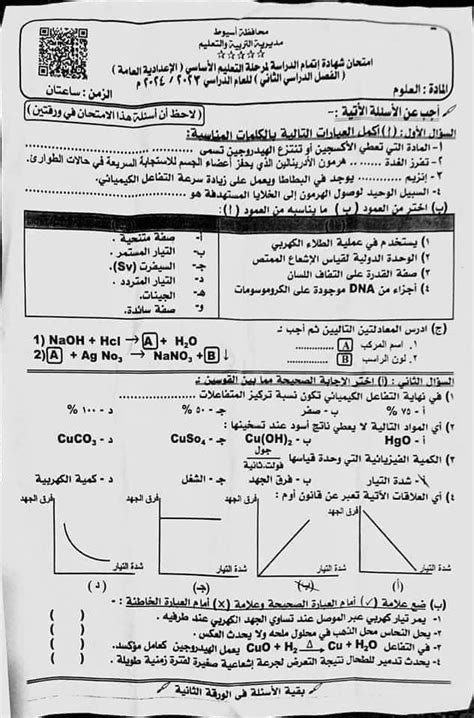 محافظة أسيوط
مديرية التربية والتعليم
☆☆☆☆☆
امتحان شهادة إتمام الدراسة لمرحلة التعليم الأساسي ( الإعدادية العامة )
( الفصل الدراسي الثاني ) للعام الدراسي ٢٠٢٣ / ٢٠٢٤ م
المادة : العلوم
الزمن : ساعتان
أجب عن الأسئلة الأتية :-
( لاحظ أن أسئلة هذا الامتحان في ورقتين )
السؤال الأول: (أ) أكمل العبارات التالية بالكلمات المناسبة:
١- المادة التي تعطي الأكسجين أو تنتزع الهيدروجين تسمى ..............
٢- تفرز الغدة ........ هرمون الأدرينالين الذي يحفز أعضاء الجسم للاستجابة السريعة في حالات الطوارئ.
٣- إنزيم .............. يوجد في البطاطا ويعمل على زيادة سرعة التفاعل الكيميائي.
٤- السبيل الوحيد لوصول الهرمون إلى الخلايا المستهدفة هو ..............
(ب) اختر من العمود ( ب ) ما يناسبه من العمود ( أ ) :
١) يستخدم في عملية الطلاء الكهربي
٢) الوحدة الدولية لقياس الإشعاع الممتص
٣) صفة القدرة على التفاف اللسان
٤) أجزاء من DNA موجودة على الكروموسومات
أ- صفة متنحية .
ب- التيار المستمر .
جـ- السيفرت (Sv).
د- التيار المتردد .
هـ- الجينات.
و- صفة سائدة.
(ج) ادرس المعادلتين التاليتين ثم أجب :-
١. اسم المركب A ..............
٢. لون الراسب B ..............
1) NaOH + Hcl → A + H₂O
2) A + Ag No₃ → NaNO₃ + B ↓
السؤال الثاني : (أ) اختر الإجابة الصحيحة مما بين القوسين :-
١) في نهاية التفاعل الكيميائي تكون نسبة تركيز المتفاعلات ..............
أ - ٧٥ % ب - صفر جـ - ٥٠ % د - ١٠٠ %
٢) أي المواد التالية لا يعطي ناتج أسود عند تسخينها :
أ - HgO ب - Cu(OH)₂ جـ - CuSo₄ د - CuCO₃
٣) الكمية الفيزيائية التي وحدة قياسها جول / فولت.ثانية
أ- شدة التيار ب- فرق الجهد جـ - الشغل د - كمية الكهربية
٤) أي العلاقات الأتية تعبر عن قانون أوم :
فرق الجهد فرق الجهد فرق الجهد فرق الجهد
شدة التيار شدة التيار شدة التيار شدة التيار
(أ) (ب) (جـ) (د)
(ب) ضع علامة (✓) أمام العبارة الصحيحة وعلامة (x) أمام العبارة الخاطئة : -
١. يمر تيار كهربي عبر الموصل عند تساوي الجهد الكهربي عند طرفيه . ( )
٢. يحل النحاس محل الذهب في محلول ملحه ولا يحدث العكس . ( )
٣- في التفاعل CuO + H₂ Δ→ Cu + H₂O يعمل الهيدروجين كعامل مؤكسد. ( )
٤- يحدث تدمير للطحال نتيجة التعرض لجرعة إشعاعية صغيرة لفترة زمنية طويلة . ( )
بقية الأسئلة في الورقة الثانية